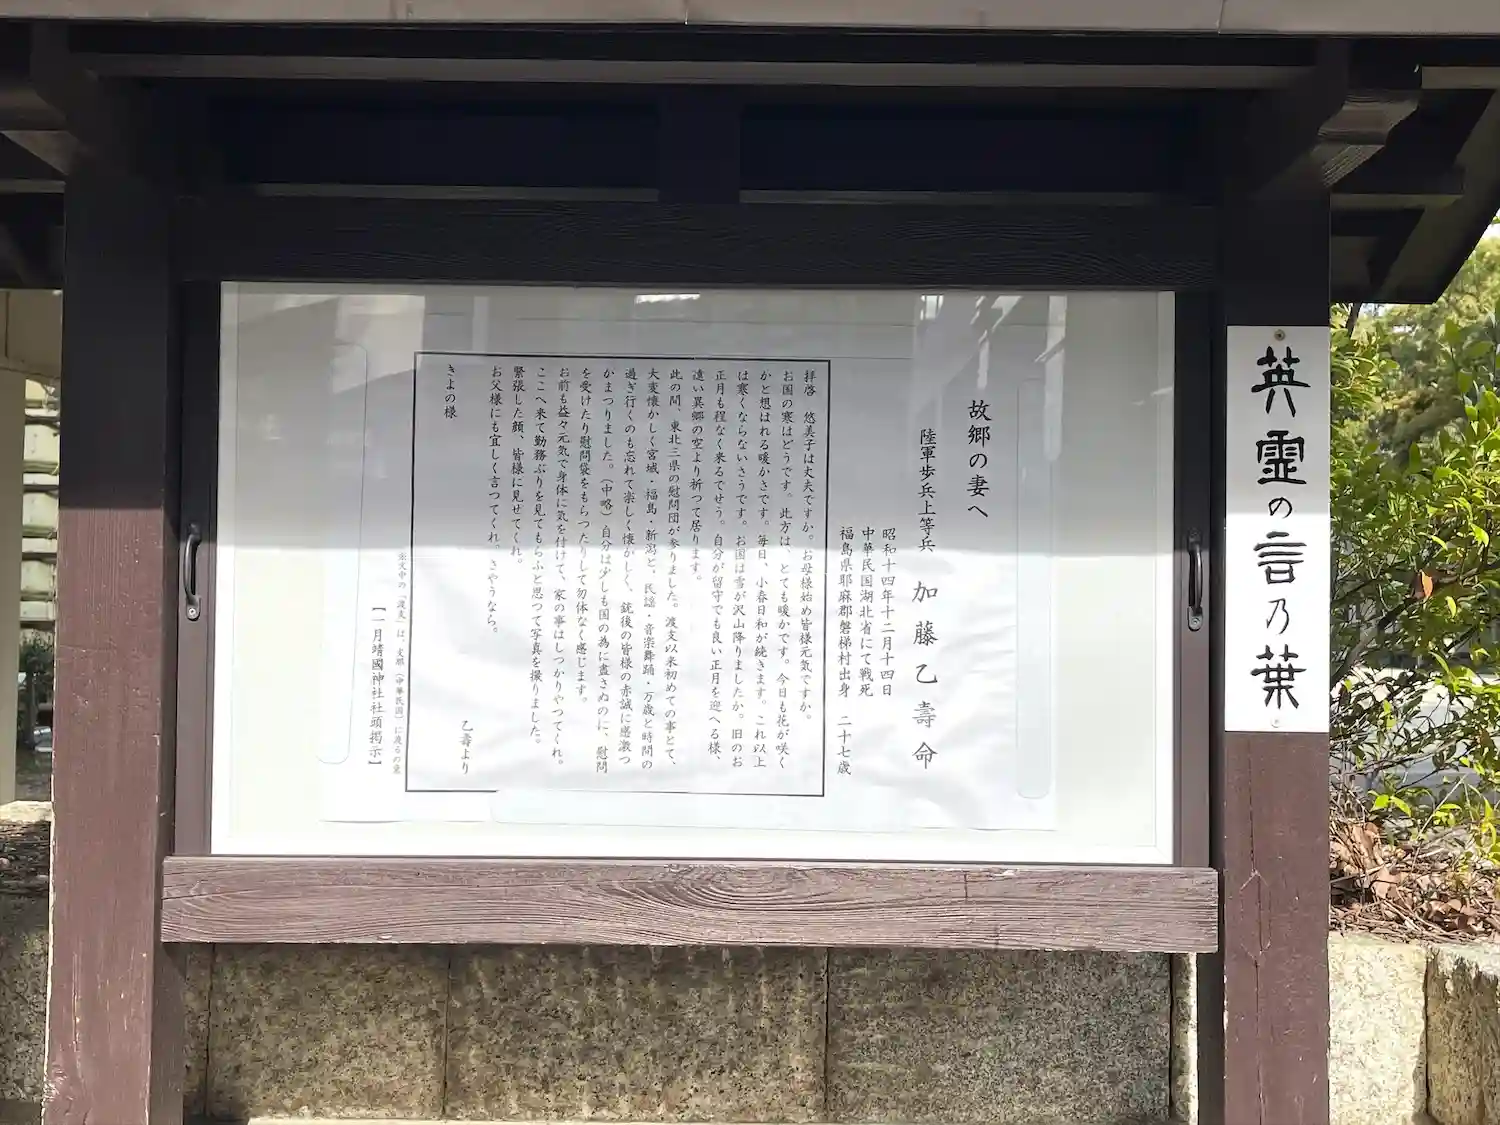 英霊の言乃葉
故郷の妻へ
陸軍歩兵上等兵 加藤乙壽命
昭和十四年十二月十四日
中華民国湖北省にて戦死
福島県耶麻郡磐梯村出身 二十七歳
拝啓 悠美子は丈夫ですか。お母様始め皆様元気ですか。
お国の寒はどうです。此方は、とても暖かです。今日も花が咲く
かと想はれる暖かさです。毎日、小春日和が続きます。これ以上
は寒くならないさうです。お国は雪が沢山降りましたか。旧のお
正月も程なく来るでせう。自分が留守でも良い正月を迎へる様、
遠い異郷の空より祈つて居ります。
此の間、東北三県の慰問団が参りました。渡支以来初めての事とて、
大変懐かしく宮城・福島・新潟と、民謡・音楽舞踊・万歳と時間の
過ぎ行くのも忘れて楽しく懐かしく、銃後の皆様の赤誠に感激つ
かまつりました。（中略）自分は少しも国の為に盡さぬのに、慰問
を受けたり慰問袋をもらつたりして勿体なく感じます。
お前も益々元気で身体に気を付けて、家の事はしつかりやつてくれ。
ここへ来て勤務ぶりを見てもらふと思つて写真を撮りました。
緊張した顔、皆様に見せてくれ。
お父様にも宜しく言つてくれ。さやうなら。
乙壽より
きよの様
※文中の「渡支」は、支那（中華民国）に渡るの意
【一月靖國神社社頭掲示】